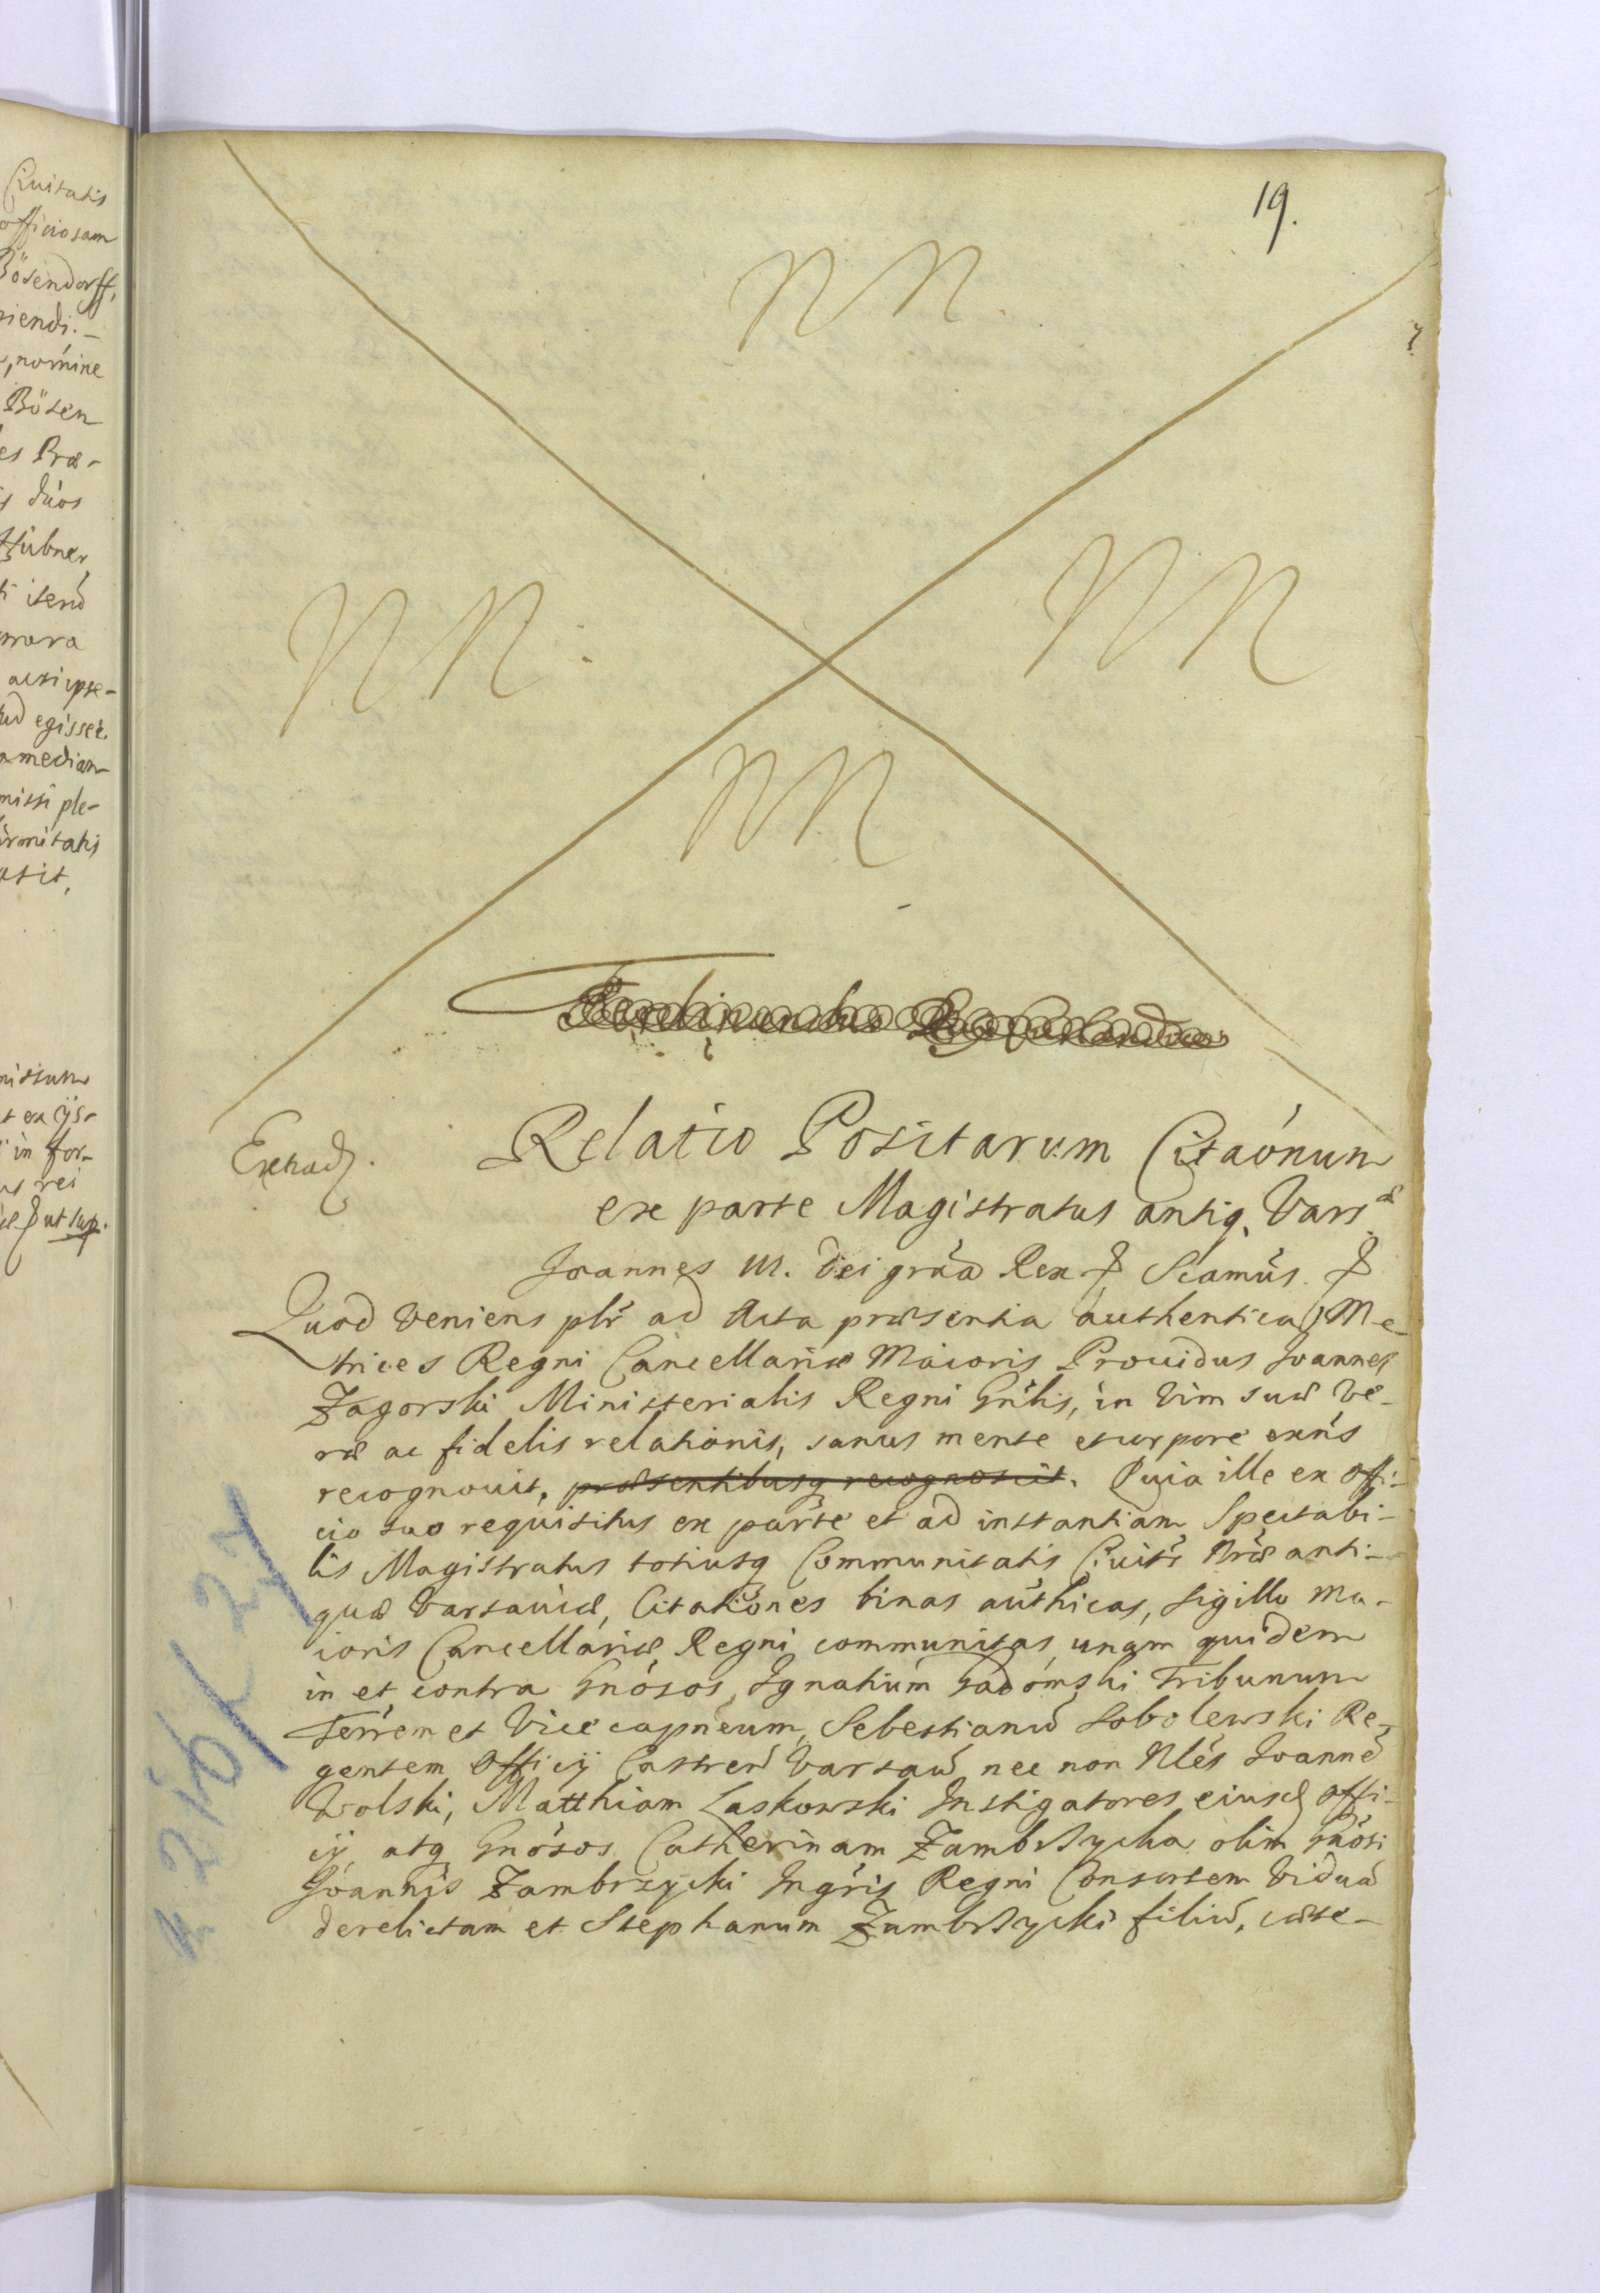 Civitatis
officiosam
Bösendorff,
niendi.-
, nomine
Bösen
es Præ-
is duos
Hübner,
acsi ipse-
ud egisset.
median-
missi ple-
irmitatis
19.
NN.
NN.
NN
NN
Extrad.
Relatio Positarum Citaónum
ex parte Magistratus antiq. Vars æ
Joannes III. Dei gráa Rex Sciamús.
Quod veniens plr ad Acta præsentia authentica Me-
trices Regni Cancellariæ Maioris Providus Joannes
Zagorski Ministerialis Regni Gnlis, in vim suæ ve-
ræ ac fidelis relationis, sanus mente et corpore exńs
recognovit, præsentibusq recognoscit. Quia ille ex offi-
cio suo requisitus ex parte et ad instantiam Spectabi-
lis Magistratus totiusq Communitatis Civits Nræ anti-
quæ Varsaviæ, Citationes binas authicas, sigillo Ma-
ioris Cancellariæ Regni communitas, unam quidem
in et contra Gnósos Ignatium Gadomski Tribunum
Terrem et Vice capneum, Sebestianu Sobolewski Re-
gentem Officij Castren Varsav nec non Nles Joanne
Wolski, Matthiam Laskowski Instigatores eiusd offi-
cij atq Gnósos Catherinam Zambrzycka olim Gnósi
Joannis Zambrzycki Ingris Regni Consortem vidua
derelictam et Stephanum Zambrzycki filiu, cæte-